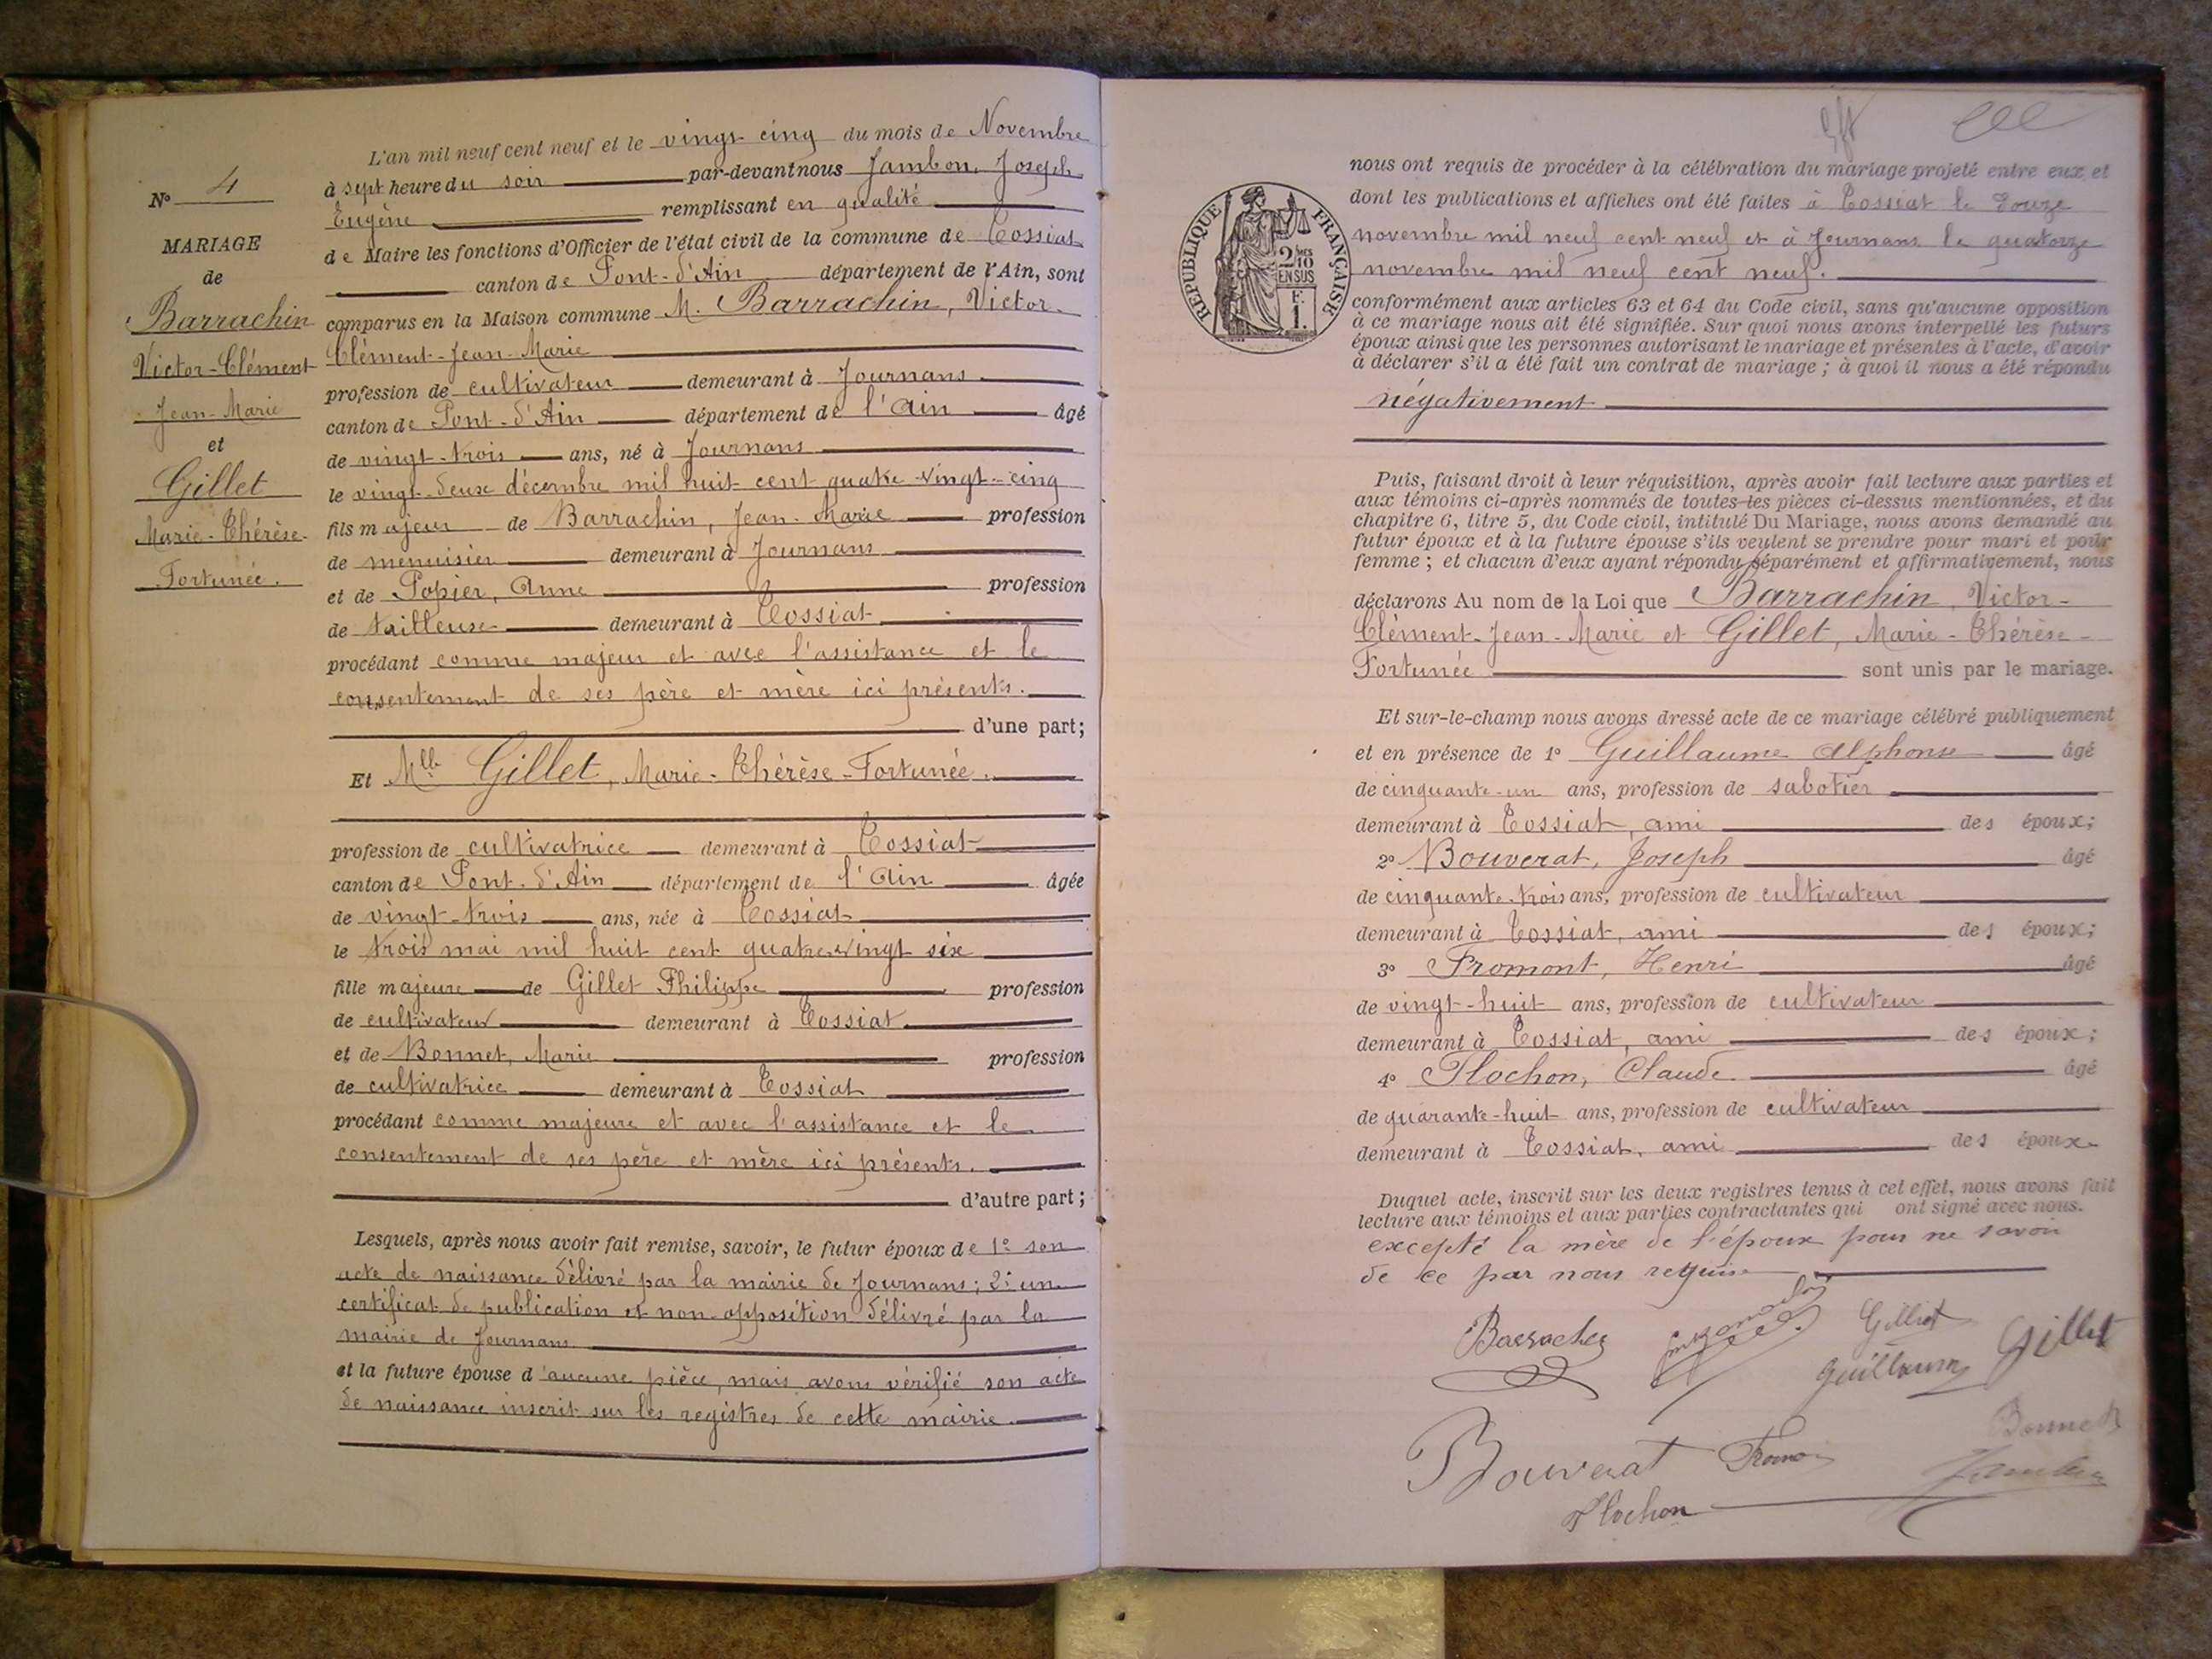 L'an mil neuf cent neuf et le vingt cinq du mois de Novembre
à sept heure du soir par-devant nous Jambon, Joseph
Eugène remplissant en qualité
de Maire les fonctions d'Officier de l'état civil de la commune de Tossiat
canton de Pont-d'Ain département de l'Ain, sont
comparus en la Maison commune M. Barrachin, Victor-
Clément-Jean-Marie
profession de cultivateur demeurant à Journans
canton de Pont-d'Ain département de l'Ain âgé
de vingt-trois ans, né à Journans
le vingt-deux décembre mil huit cent quatre-vingt-cinq
fils majeur de Barrachin, Jean-Marie profession
de menuisier demeurant à Journans
et de Popier, Anne profession
de tailleuse demeurant à Tossiat
procédant comme majeur et avec l'assistance et le
consentement de ses père et mère ici présents.
d'une part;
Et Mlle Gillet, Marie-Thérèse-Fortunée.
profession de cultivatrice demeurant à Tossiat
canton de Pont-d'Ain département de l'Ain âgée
de vingt-trois ans, née à Tossiat
le trois mai mil huit cent quatre-vingt six
fille majeure de Gillet Philippe profession
de cultivateur demeurant à Tossiat
et de Bonnet, Marie profession
de cultivatrice demeurant à Tossiat
procédant comme majeure et avec l'assistance et le
consentement de ses père et mère ici présents.
d'autre part;
Lesquels, après nous avoir fait remise, savoir, le futur époux de 1° son
acte de naissance délivré par la mairie de Journans; 2° un
certificat de publication et non-opposition délivré par la
mairie de Journans
et la future épouse d'aucune pièce, mais avons vérifié son acte
de naissance inscrit sur les registres de cette mairie.
N° 4
MARIAGE
de
Barrachin
Victor-Clément
Jean-Marie
et
Gillet
Marie-Thérèse-
Fortunée.
RÉPUBLIQUE FRANÇAISE
2/10
EN SUS
F.
1.
nous ont requis de procéder à la célébration du mariage projeté entre eux et
dont les publications et affiches ont été faites à Tossiat le douze
novembre mil neuf cent neuf et à Journans le quatorze
novembre mil neuf cent neuf.
conformément aux articles 63 et 64 du Code civil, sans qu'aucune opposition
à ce mariage nous ait été signifiée. Sur quoi nous avons interpellé les futurs
époux ainsi que les personnes autorisant le mariage et présentes à l'acte, d'avoir
à déclarer s'il a été fait un contrat de mariage; à quoi il nous a été répondu
négativement
Puis, faisant droit à leur réquisition, après avoir fait lecture aux parties et
aux témoins ci-après nommés de toutes les pièces ci-dessus mentionnées, et du
chapitre 6, titre 5, du Code civil, intitulé Du Mariage, nous avons demandé au
futur époux et à la future épouse s'ils veulent se prendre pour mari et pour
femme; et chacun d'eux ayant répondu séparément et affirmativement, nous
déclarons Au nom de la Loi que Barrachin, Victor-
Clément-Jean-Marie et Gillet, Marie-Thérèse-
Fortunée sont unis par le mariage.
Et sur-le-champ nous avons dressé acte de ce mariage célébré publiquement
et en présence de 1° Guillaume Alphonse âgé
de cinquante-un ans, profession de sabotier
demeurant à Tossiat, ami des époux;
2° Bouverat, Joseph âgé
de cinquante-trois ans, profession de cultivateur
demeurant à Tossiat, ami des époux;
3° Fromont, Henri âgé
de vingt-huit ans, profession de cultivateur
demeurant à Tossiat, ami des époux;
4° Plochon, Claude âgé
de quarante-huit ans, profession de cultivateur
demeurant à Tossiat, ami des époux.
Duquel acte, inscrit sur les deux registres tenus à cet effet, nous avons fait
lecture aux témoins et aux parties contractantes qui ont signé avec nous.
excepté la mère de l'époux pour ne savoir
de ce par nous requise
Gillet
Guillaume Gillet
Bonnet
Bouverat
Plochon